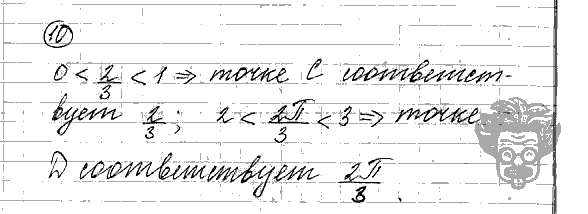 10
0 < 2/3 < 1 ⇒ точке C соответст-
вует 2/3; 2 < 2π/3 < 3 ⇒ точке
D соответствует 2π/3.